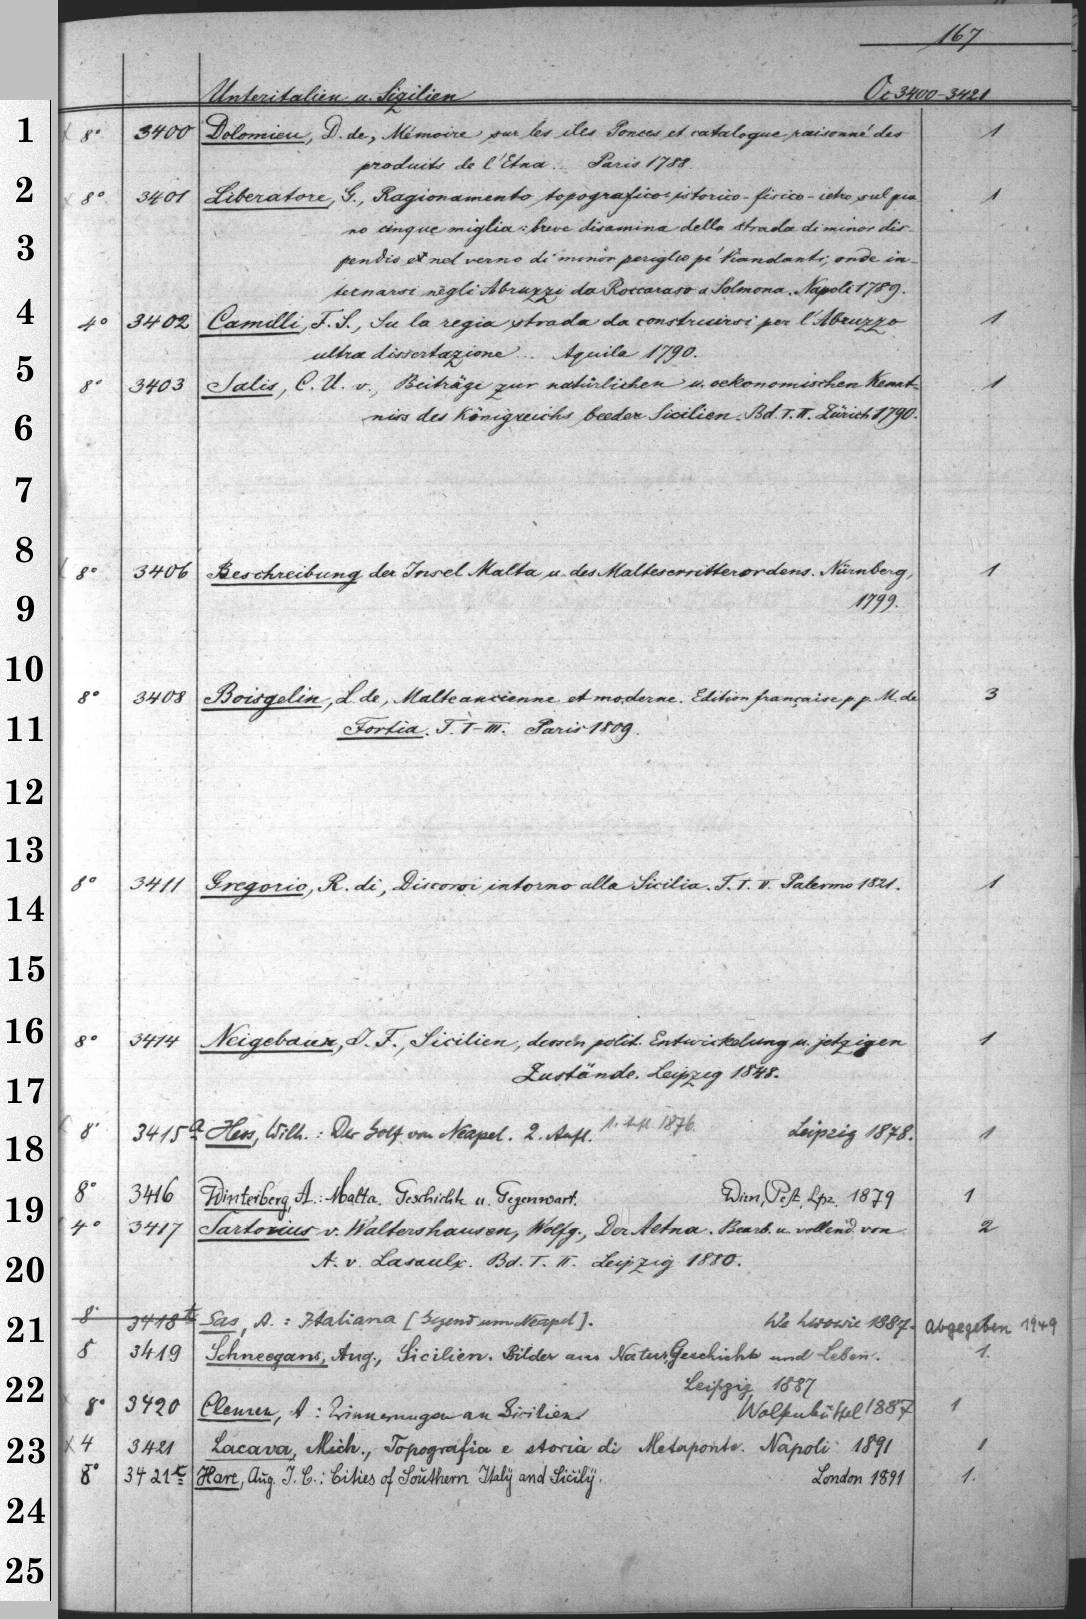 167
Unteritalien u. Sizilien Oc 3400-3421
1 8° 3400 Dolomieu, D. de, Mémoire sur les iles Ponces et catalogue raisonné des 1
produits de l'Etna... Paris 1788.
2 8° 3401 Liberatore, G., Ragionamento topografico-istorico-fisico-ietro sul pia 1
3 no cinque miglia: breve disamina della strada di minor dis-
pendio et nel verno di minor periglio pe' Viandanti, onde in-
ternarsi negli Abruzzi da Roccaraso a Solmona. Napoli 1789.
4 4° 3402 Camilli, F. S., Su la regia strada da construirsi per l'Abruzzo 1
ultra dissertazione... Aquila 1790.
5 8° 3403 Salis, C. U. v., Beiträge zur natürlichen u. oekonomischen Kennt- 1
6 niss des Königreichs beeder Sicilien. Bd. I. II. Zürich 1790.
7
8 8° 3406 Beschreibung der Insel Malta u. des Malteserritterordens. Nürnberg, 1
9 1799.
10 8° 3408 Boisgelin, L. de, Malte ancienne et moderne. Edition française p p. M. de 3
11 Fortia. T. I-III. Paris 1809.
12
13 8° 3411 Gregorio, R. di, Discorsi intorno alla Sicilia. T. I. II. Palermo 1821. 1
14
15
16 8° 3414 Neigebaur, J. F., Sicilien, dessen polit. Entwickelung u. jetzigen 1
17 Zustände. Leipzig 1848.
18 8° 3415a Hess, Wilh.: Der Golf von Neapel. 2. Aufl. 1876. Leipzig 1878. 1
19 8° 3416 Winterberg, A.: Malta. Geschichte u. Gegenwart. Wien, Pest, Lpz. 1879 1
4° 3417 Sartorius v. Waltershausen, Wolfg., Der Aetna. Bearb. u. vollend. von 2
20 A. v. Lasaulx. Bd. I. II. Leipzig 1880.
21 8° 3418 Sas, A.: Italiana [Gegend um Neapel]. We Lwowie 1887. abgegeben 1949
8 3419 Schneegans, Aug., Sicilien. Bilder aus Natur, Geschichte und Leben. 1.
22 Leipzig 1887
8° 3420 Clemen, A: Erinnerungen an Sicilien Wolfenbüttel 1887 1
23 4 3421 Lacava, Mich., Topografia e storia di Metaponto. Napoli 1891 1
8° 3421 Hare, Aug. J. C.: Cities of Southern Italy and Sicily. London 1891 1.
24
25